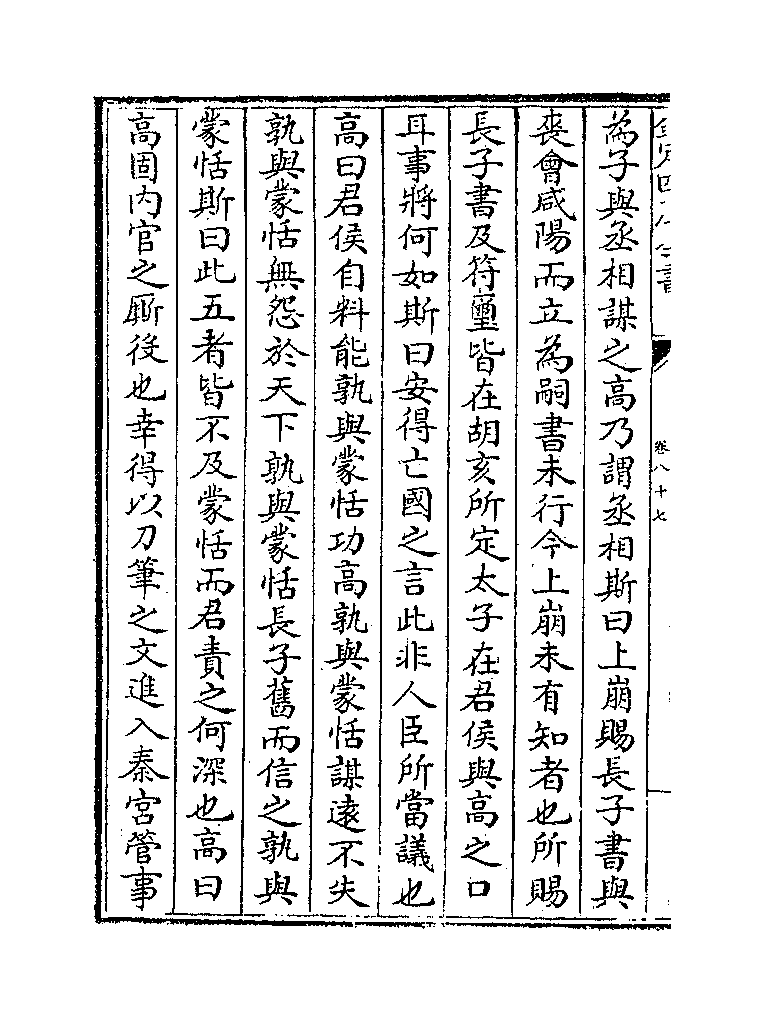 為子與丞相謀之高乃謂丞相斯曰上崩賜長子書與
喪會咸陽而立為嗣書未行今上崩未有知者也所賜
長子書及符璽皆在胡亥所定太子在君侯與高之口
耳事將何如斯曰安得亡國之言此非人臣所當議也
高曰君侯自料能孰與蒙恬功高孰與蒙恬謀遠不失
孰與蒙恬無怨於天下孰與蒙恬長子舊而信之孰與
蒙恬斯曰此五者皆不及蒙恬而君責之何深也高曰
高固内官之厮役也幸得以刀筆之文進入秦宮管事
卷八十七